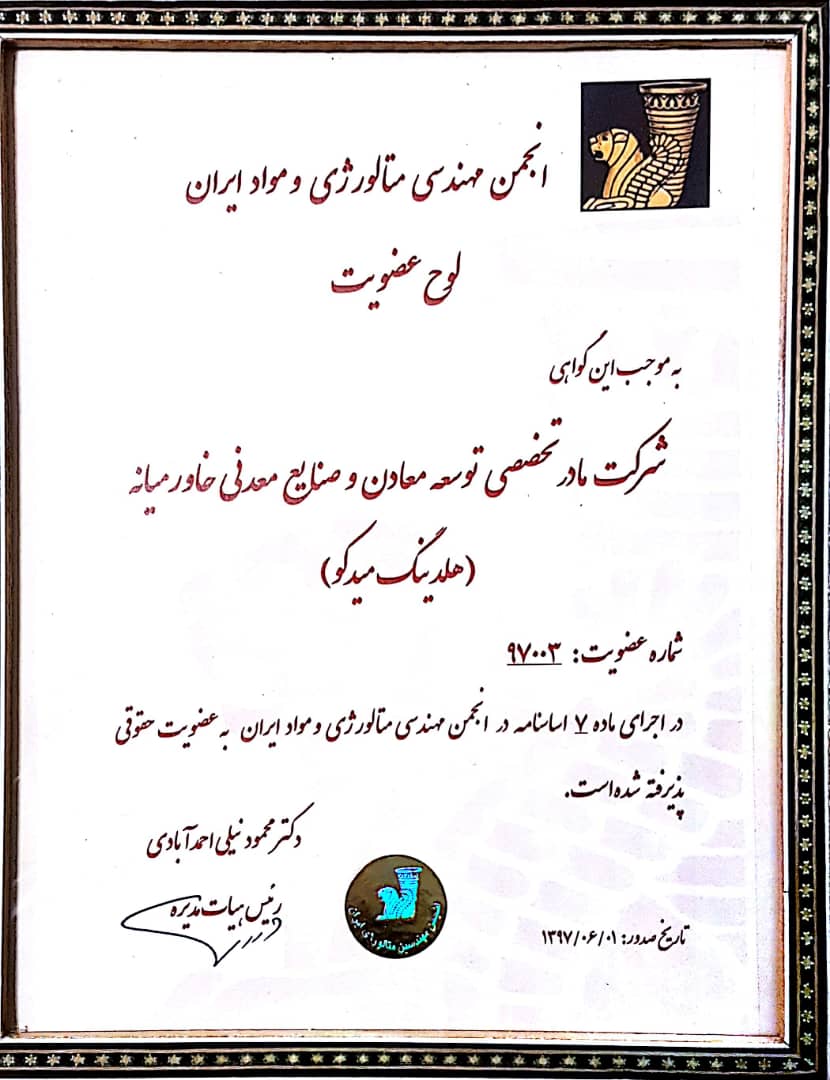 انجمن مهندسی متالورژی و مواد ایران
لوح عضویت
به موجب این گواهی
شرکت مادر تخصصی توسعه معادن و صنایع معدنی خاورمیانه
(هلدینگ میدکو)
شماره عضویت: ۹۷۰۰۳
در اجرای ماده ۷ اساسنامه در انجمن مهندسی متالورژی و مواد ایران به عضویت حقوقی
پذیرفته شده است.
دکتر محمود نیلی احمدآبادی
رئیس هیات مدیره
انجمن مهندسین متالورژی ایران
تاریخ صدور: ۱۳۹۷/۰۶/۰۱